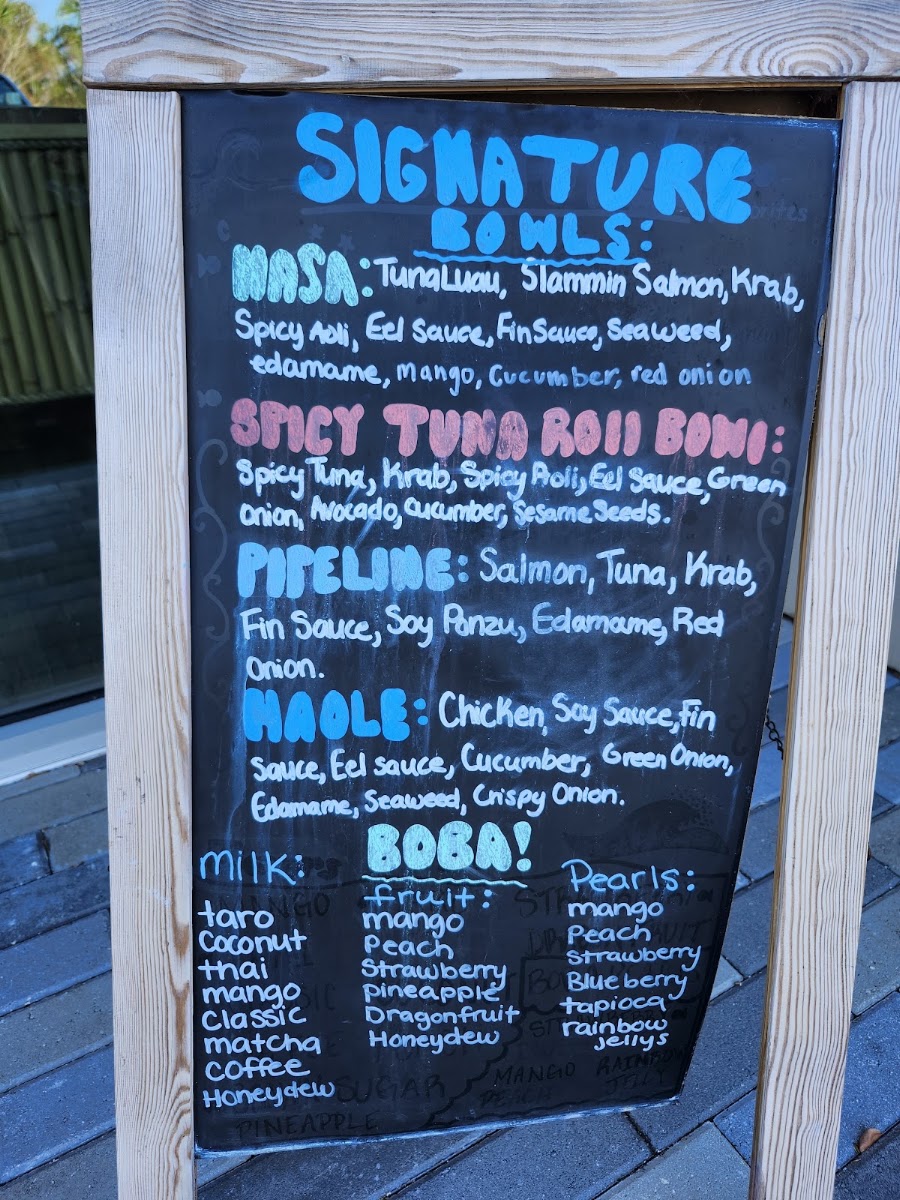 SIGNATURE
BOWLS:
MASA: Tuna Luau, Slammin Salmon, Krab,
Spicy Aoli, Eel Sauce, Fin Sauce, Seaweed,
edamame, mango, Cucumber, red onion
SPICY TUNA ROll BOWl:
Spicy Tuna, Krab, Spicy Aoli, Eel Sauce, Green
Onion, Avocado, Cucumber, Sesame Seeds.
PIPELINE: Salmon, Tuna, Krab,
Fin Sauce, Soy Ponzu, Edamame, Red
Onion.
HAOLE: Chicken, Soy Sauce, Fin
Sauce, Eel sauce, Cucumber, Green Onion,
Edamame, Seaweed, Crispy Onion.
BOBA!
milk:
taro
Coconut
thai
mango
Classic
matcha
coffee
Honeydew
fruit:
mango
Peach
Strawberry
pineapple
Dragonfruit
Honeydew
Pearls:
mango
Peach
Strawberry
Blueberry
tapioca
rainbow
jellys
MANGO
SUGAR
PINEAPPLE
MANGO RAINBOW
PEACH JELLY